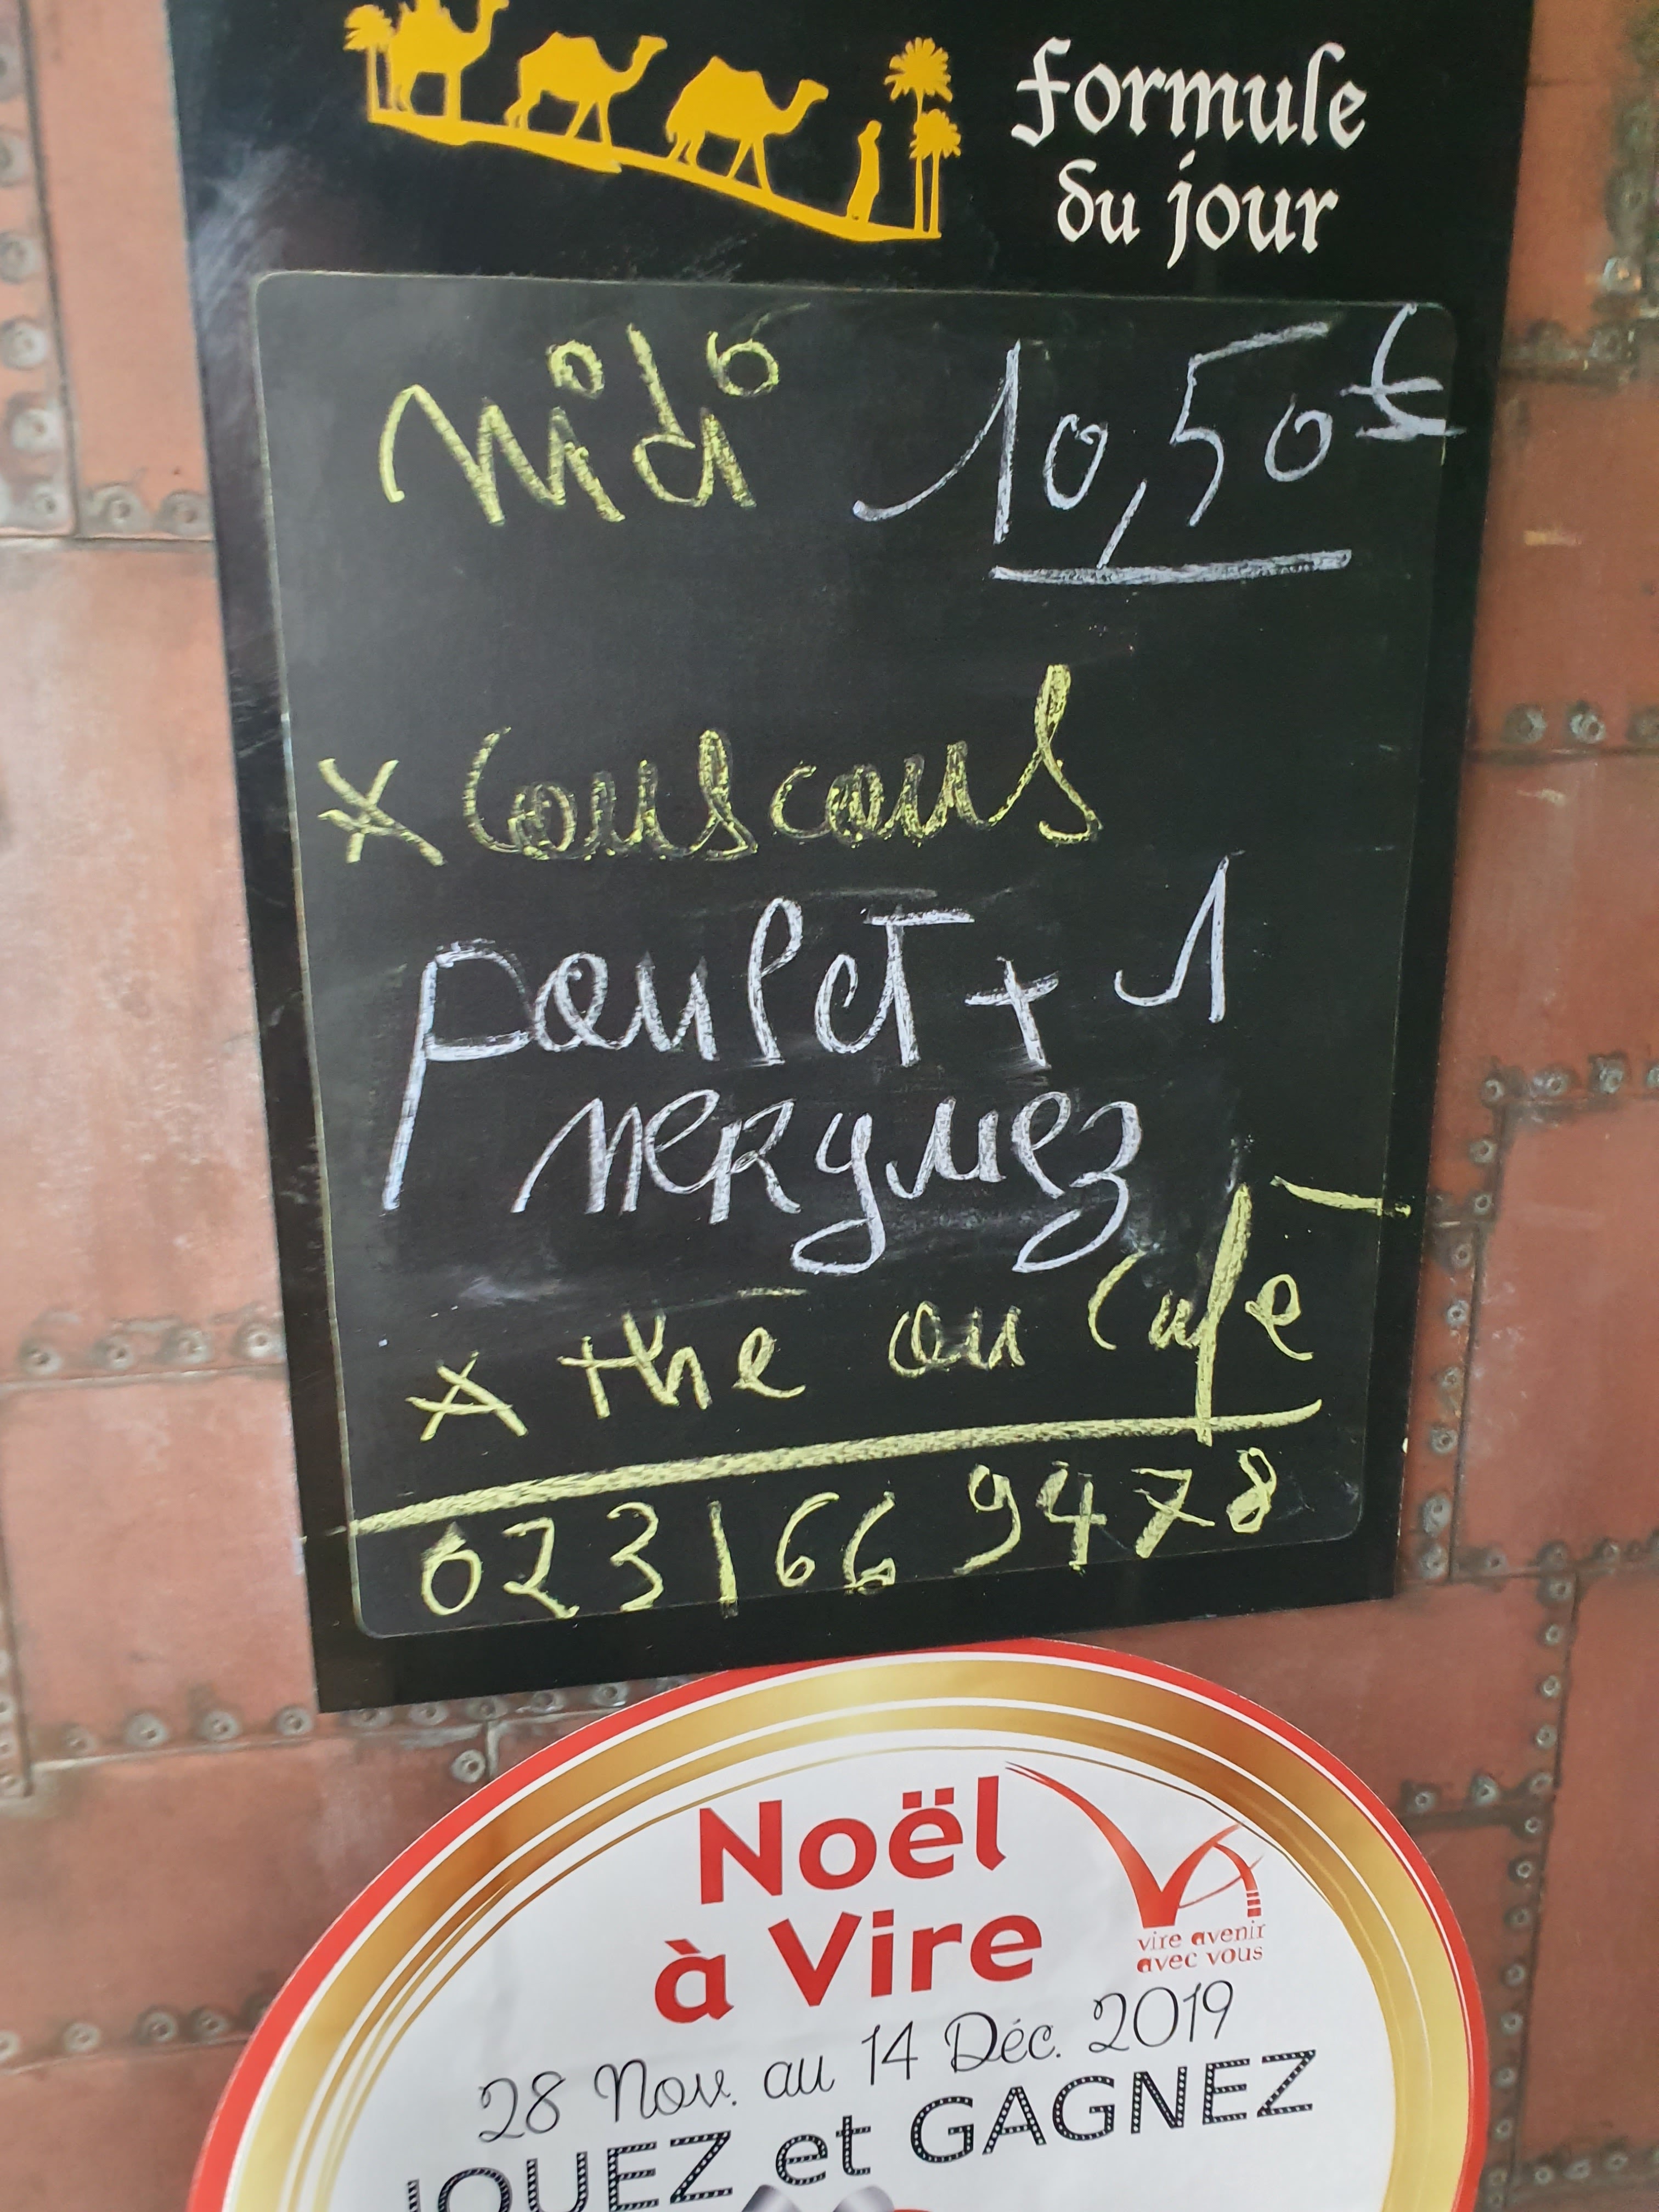 formule
du jour
Midi 10,50€
x Couscous
Poulet + 1
merguez
x thé ou Café
0231669478
Noël
à Vire
vire avenir
avec vous
28 Nov. au 14 Déc. 2019
JOUEZ et GAGNEZ